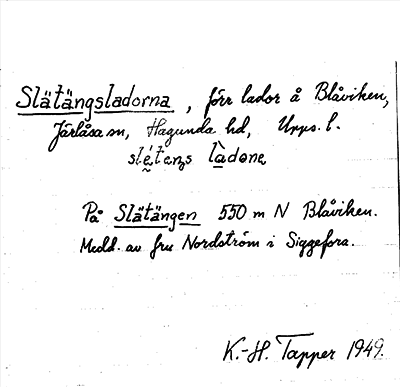 Slätängsladorna, förr lador å Blåviken,
Järlåsa sn, Hagunda hd, Upps. l.
sléteṉs làdone
På Slätängen 550 m N Blåviken.
Medd. av fru Nordström i Siggefora.
K.-H. Tapper 1949.